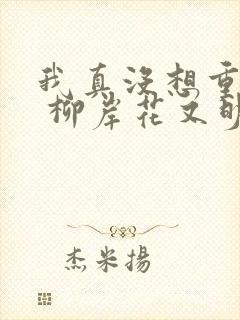 我真没想重
柳岸花又明
杰米揚